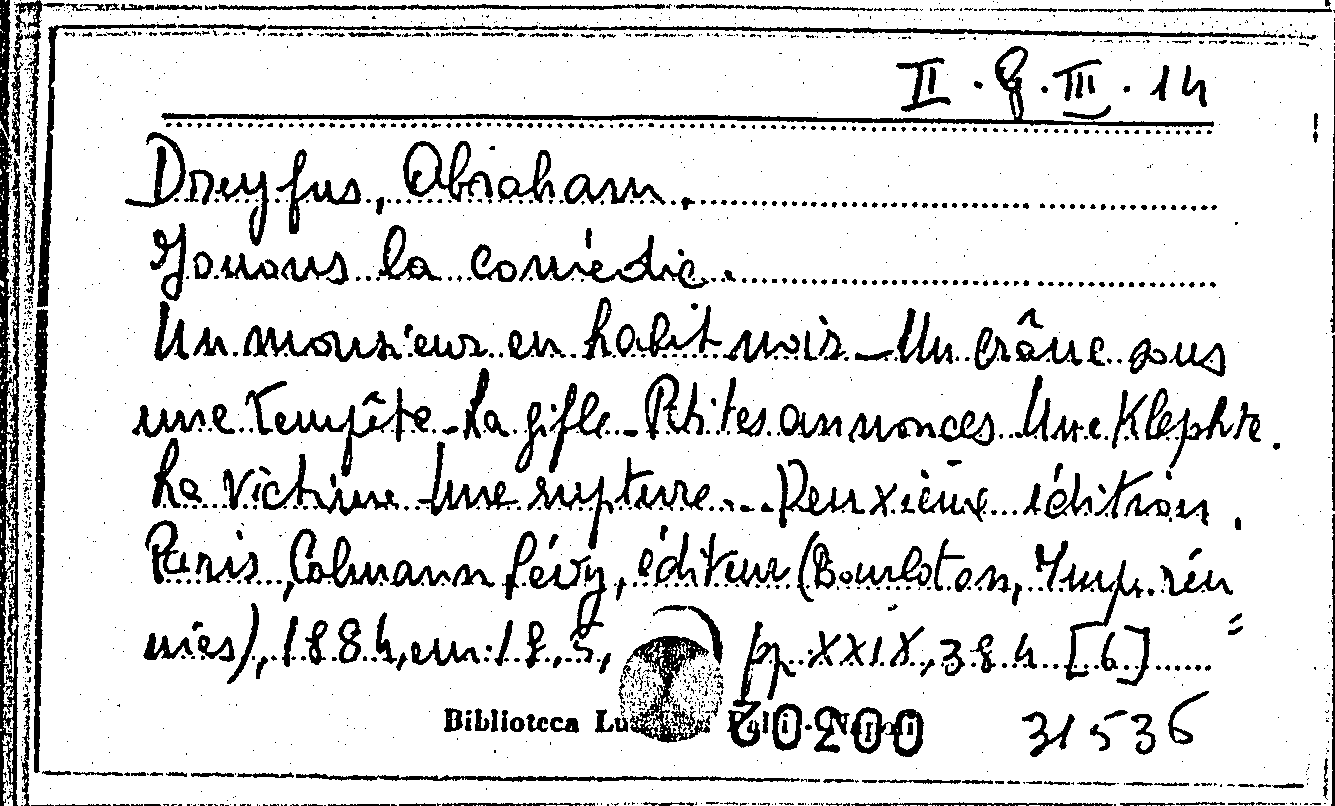 II. G. III. 14
Dreyfus, Abraham.
Jouons la comédie.
Un monsieur en habit noir _ Un crâne sous
une tempête _ La gifle _ Petites annonces _ Une Klephte.
La Victime _ Une rupture... Deuxième édition.
Paris, Calmann Lévy, éditeur (Bourloton, Imp. réu
nies), 1884, cm. 18,5, pp. XXIX, 384 [6]
Biblioteca
20200 31536